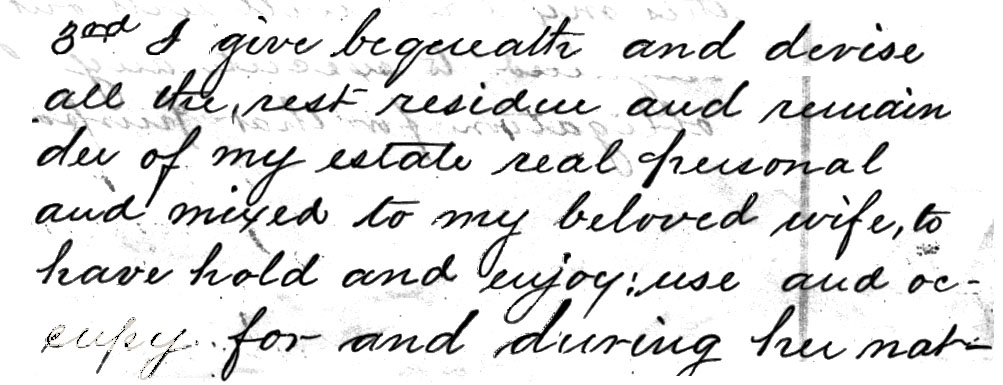 3rd I give bequeath and devise
all the, rest residue and remain
der of my estate real personal
and mixed to my beloved wife, to
have hold and enjoy: use and oc-
cupy for and during her nat-